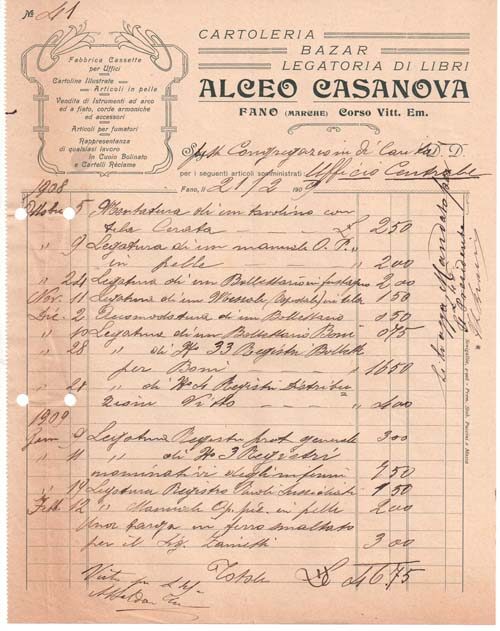 № 41
CARTOLERIA
BAZAR
LEGATORIA DI LIBRI
ALCEO CASANOVA
FANO (MARCHE) Corso Vitt. Em.
Fabbrica Cassette
per Uffici
Cartoline Illustrate
Articoli in pelle
Vendita di Istrumenti ad arco
ed a fiato, corde armoniche
ed accessori
Articoli per fumatori
Rappresentanza
di qualsiasi lavoro
in Cuoio Bolinato
e Cartelli Réclame
Congregazione di Carità D.
per i seguenti articoli somministrati: Ufficio Centrale
Fano, li 21/2 1909
1908
5 Montatura di un tavolino con
tela Cerata £ 2 50
" 9 Legatura di un manuale O. P.
in pelle " 2 00
" 24 Legatura di un Bollettario in fustagno 2 00
Nov. 11 Legatura di un in tela 1 50
Dic. 2 Accomodatura di un Bollettario 0 50
" 10 Legatura di un Bollettario Boni 0 75
" 28 " di No 33 Registri
per Boni " 16 50
" 28 " di No 4 Registri
Vitto " 4 00
1909
Genn. 9 Legatura Registro prot. generale 3 00
" 11 " di No 3 Registri
nominativi degli infermi 7 50
" 19 Legatura Registro 1 50
12 " Manuale Op. pie in pelle 2 00
Una targa in ferro smaltato
per il Sig. 3 00
Totale £ 46.75
Visto
Mandato
Presidente